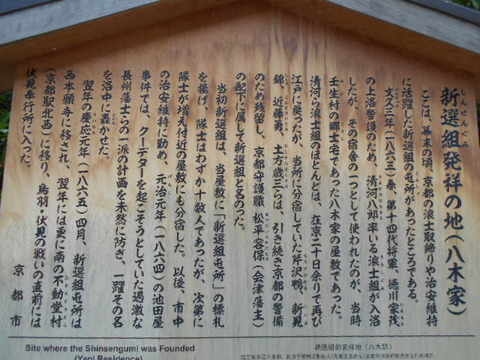 新選組発祥の地(八木家)
しんせんぐみ
ここは、幕末の頃、京都の浪士取締りや治安維持
に活躍した新選組の屯所があったところである。
文久三年(一八六三)春、第十四代将軍、徳川家茂
の上洛警護のため、清河八郎率いる浪士組が入洛
したが、その宿舎の一つとして使われたのが、当時
壬生村の郷士宅であった八木家の屋敷であった。
清河ら浪士組のほとんどは、在京二十日余りで再び
江戸に戻ったが、当所に分宿していた芹沢鴨、新見
錦、近藤勇、土方歳三らは、引き続き京都の警備
のため残留し、京都守護職 松平容保(会津藩主)
の配下に属して新選組と名のった。
当初新選組は、当屋敷に「新選組屯所」の標札
を揚げ、隊士はわずか十数人であったが、次第に
隊士が増え付近の屋敷にも分宿した。以後、市中
の治安維持に勤め、元治元年(一八六四)の池田屋
事件では、クーデターを起こそうとしていた過激な
長州藩士らの一派の計画を未然に防ぎ、一躍その名
を洛中に轟かせた。
翌年の慶応元年(一八六五)四月、新選組屯所は
西本願寺に移され、翌年には更に南の不動堂村
(京都駅北西)に移り、鳥羽・伏見の戦いの直前には
伏見奉行所に入った。
京都市
Site where the Shinsengumi was Founded
(Yagi Residence)